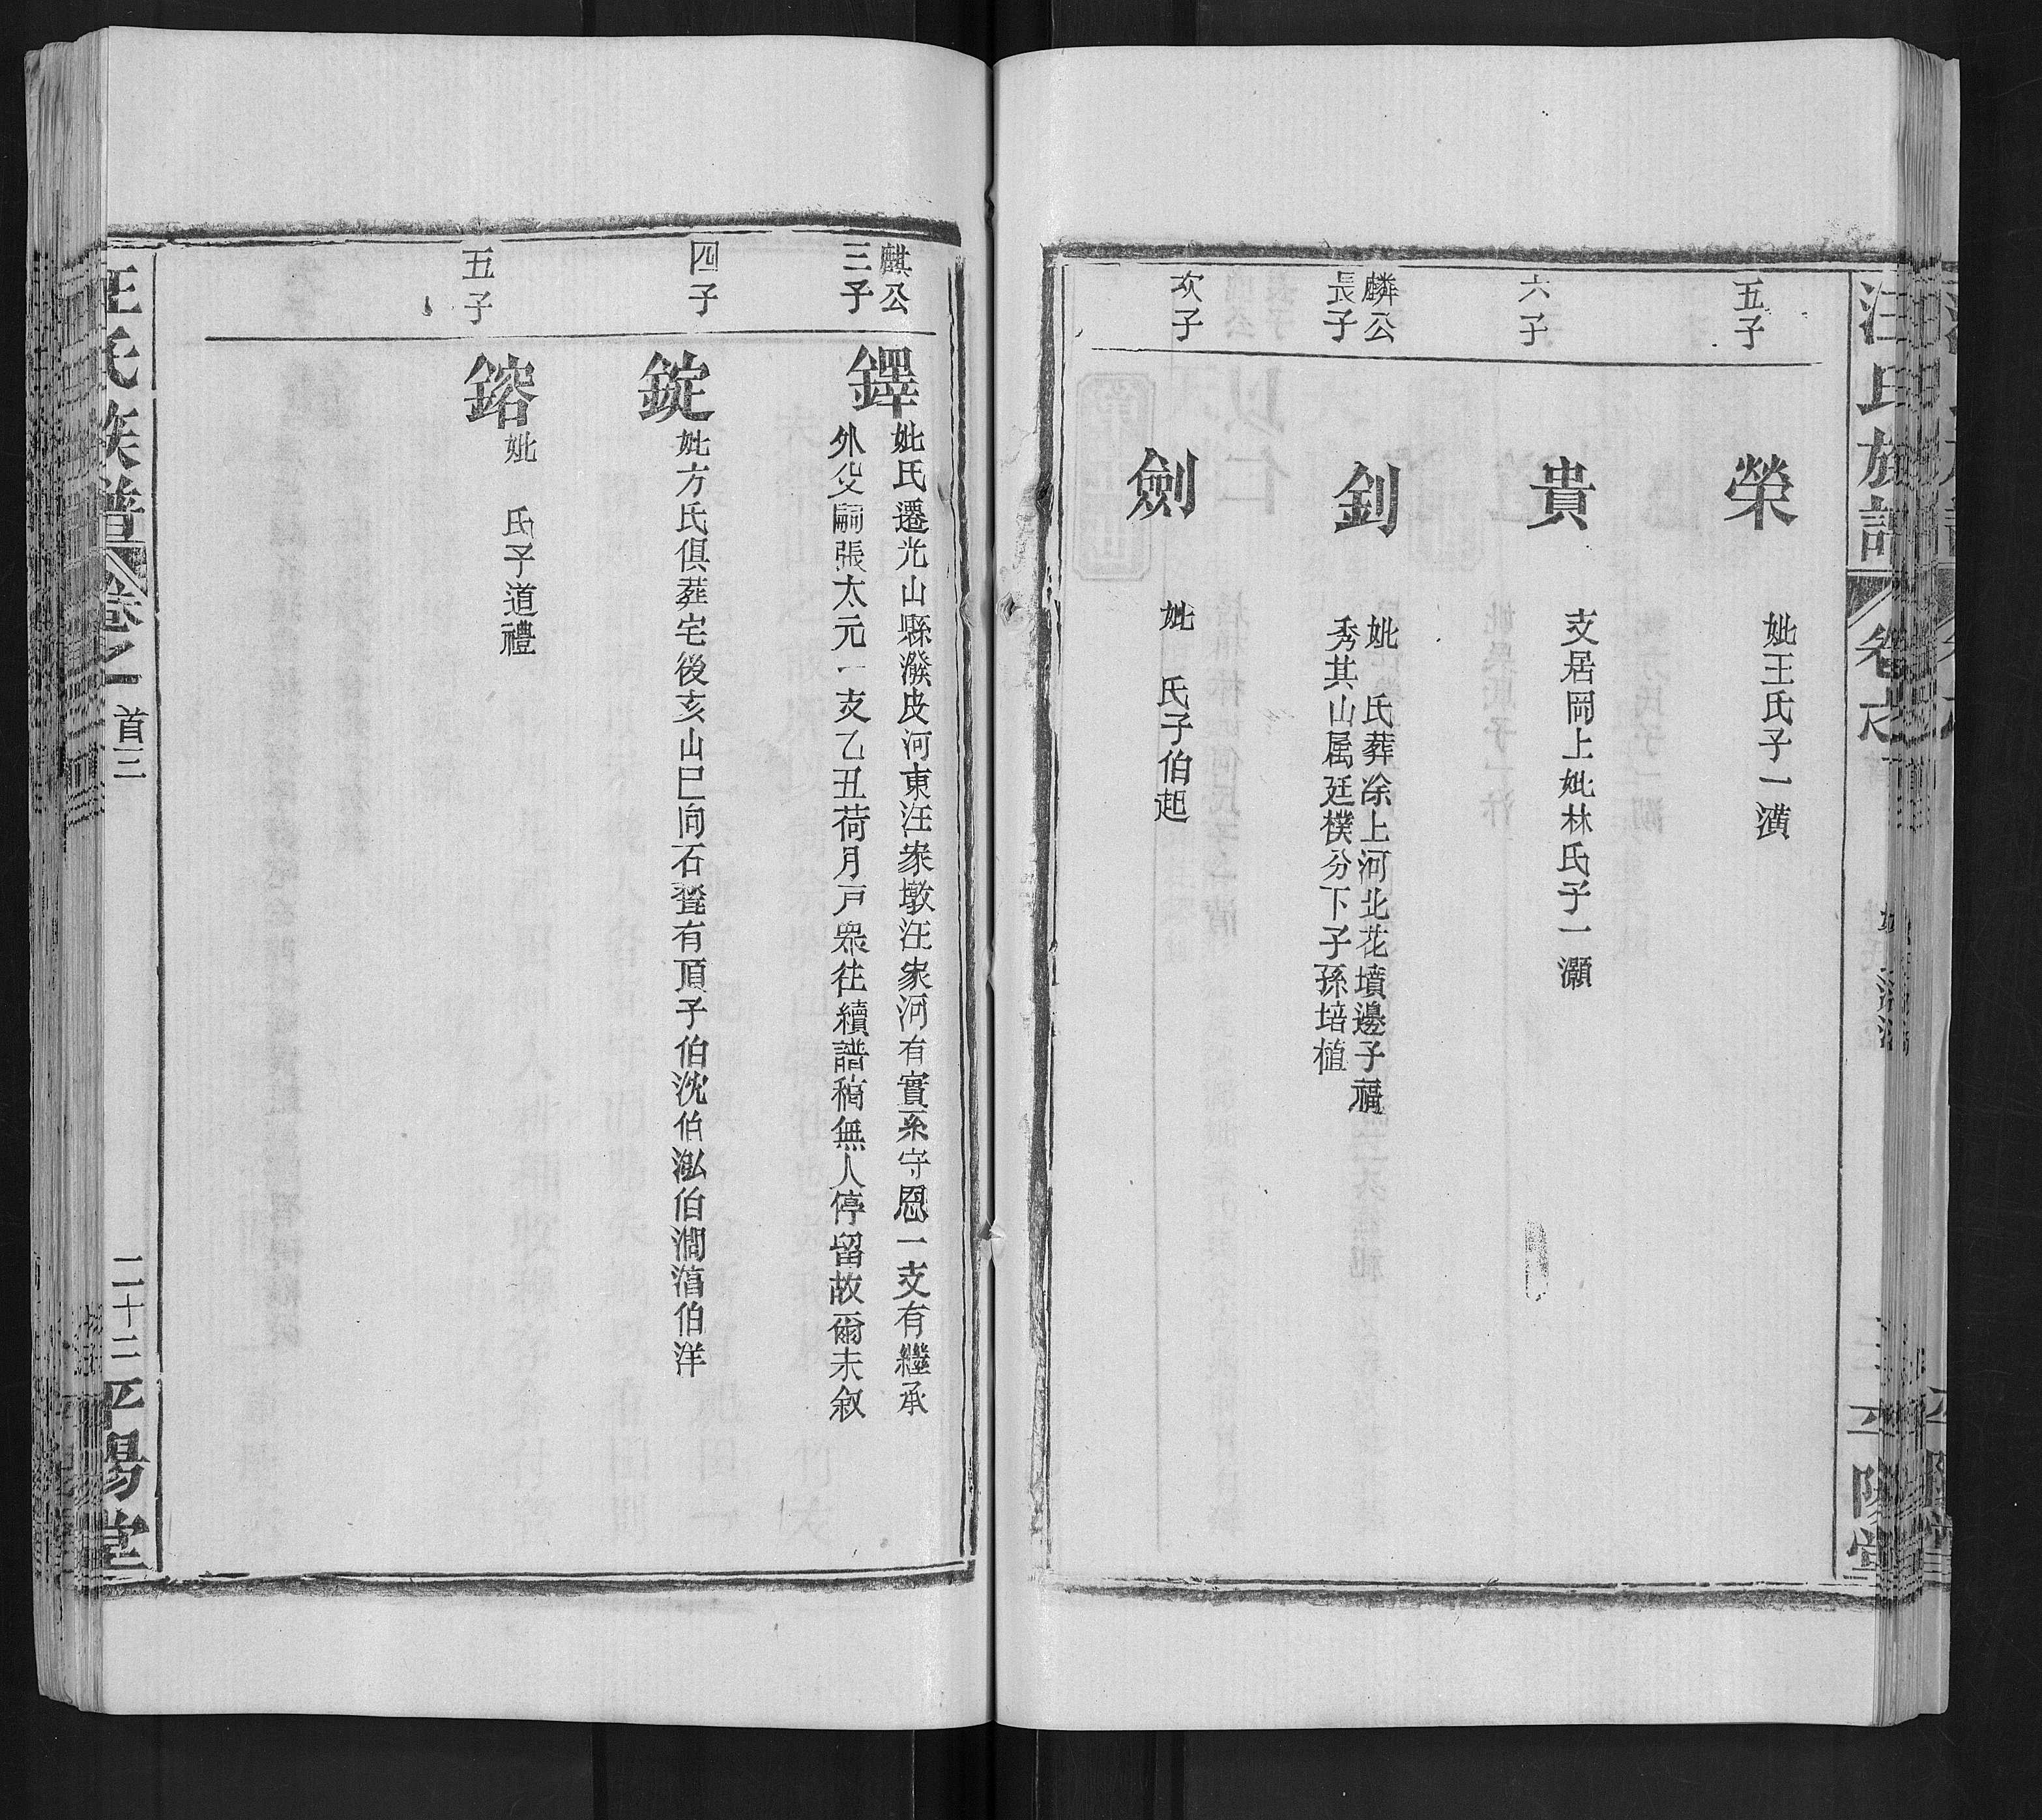 汪氏族譜
五子
榮
妣王氏子一潢
六子
貴
支居岡上妣林氏子一灝
麟公
長子
釗
妣 氏葬凃上河北花墳邊子福
秀其山屬廷樸分下子孫培植
次子
劍
妣 氏子伯起
麒公
三子
鐸
妣氏遷光山縣潑皮河東汪家墩汪家河有實系守恩一支有繼承
外父嗣張太元一支乙丑荷月戸衆往續譜稿無人停留故爾未叙
四子
錠
妣方氏俱葬宅後亥山巳向石
有頂子伯沈伯泓伯澗湇伯洋
五子
鎔
妣 氏子道禮
汪氏族譜
卷之一
首三
二十三
平陽堂